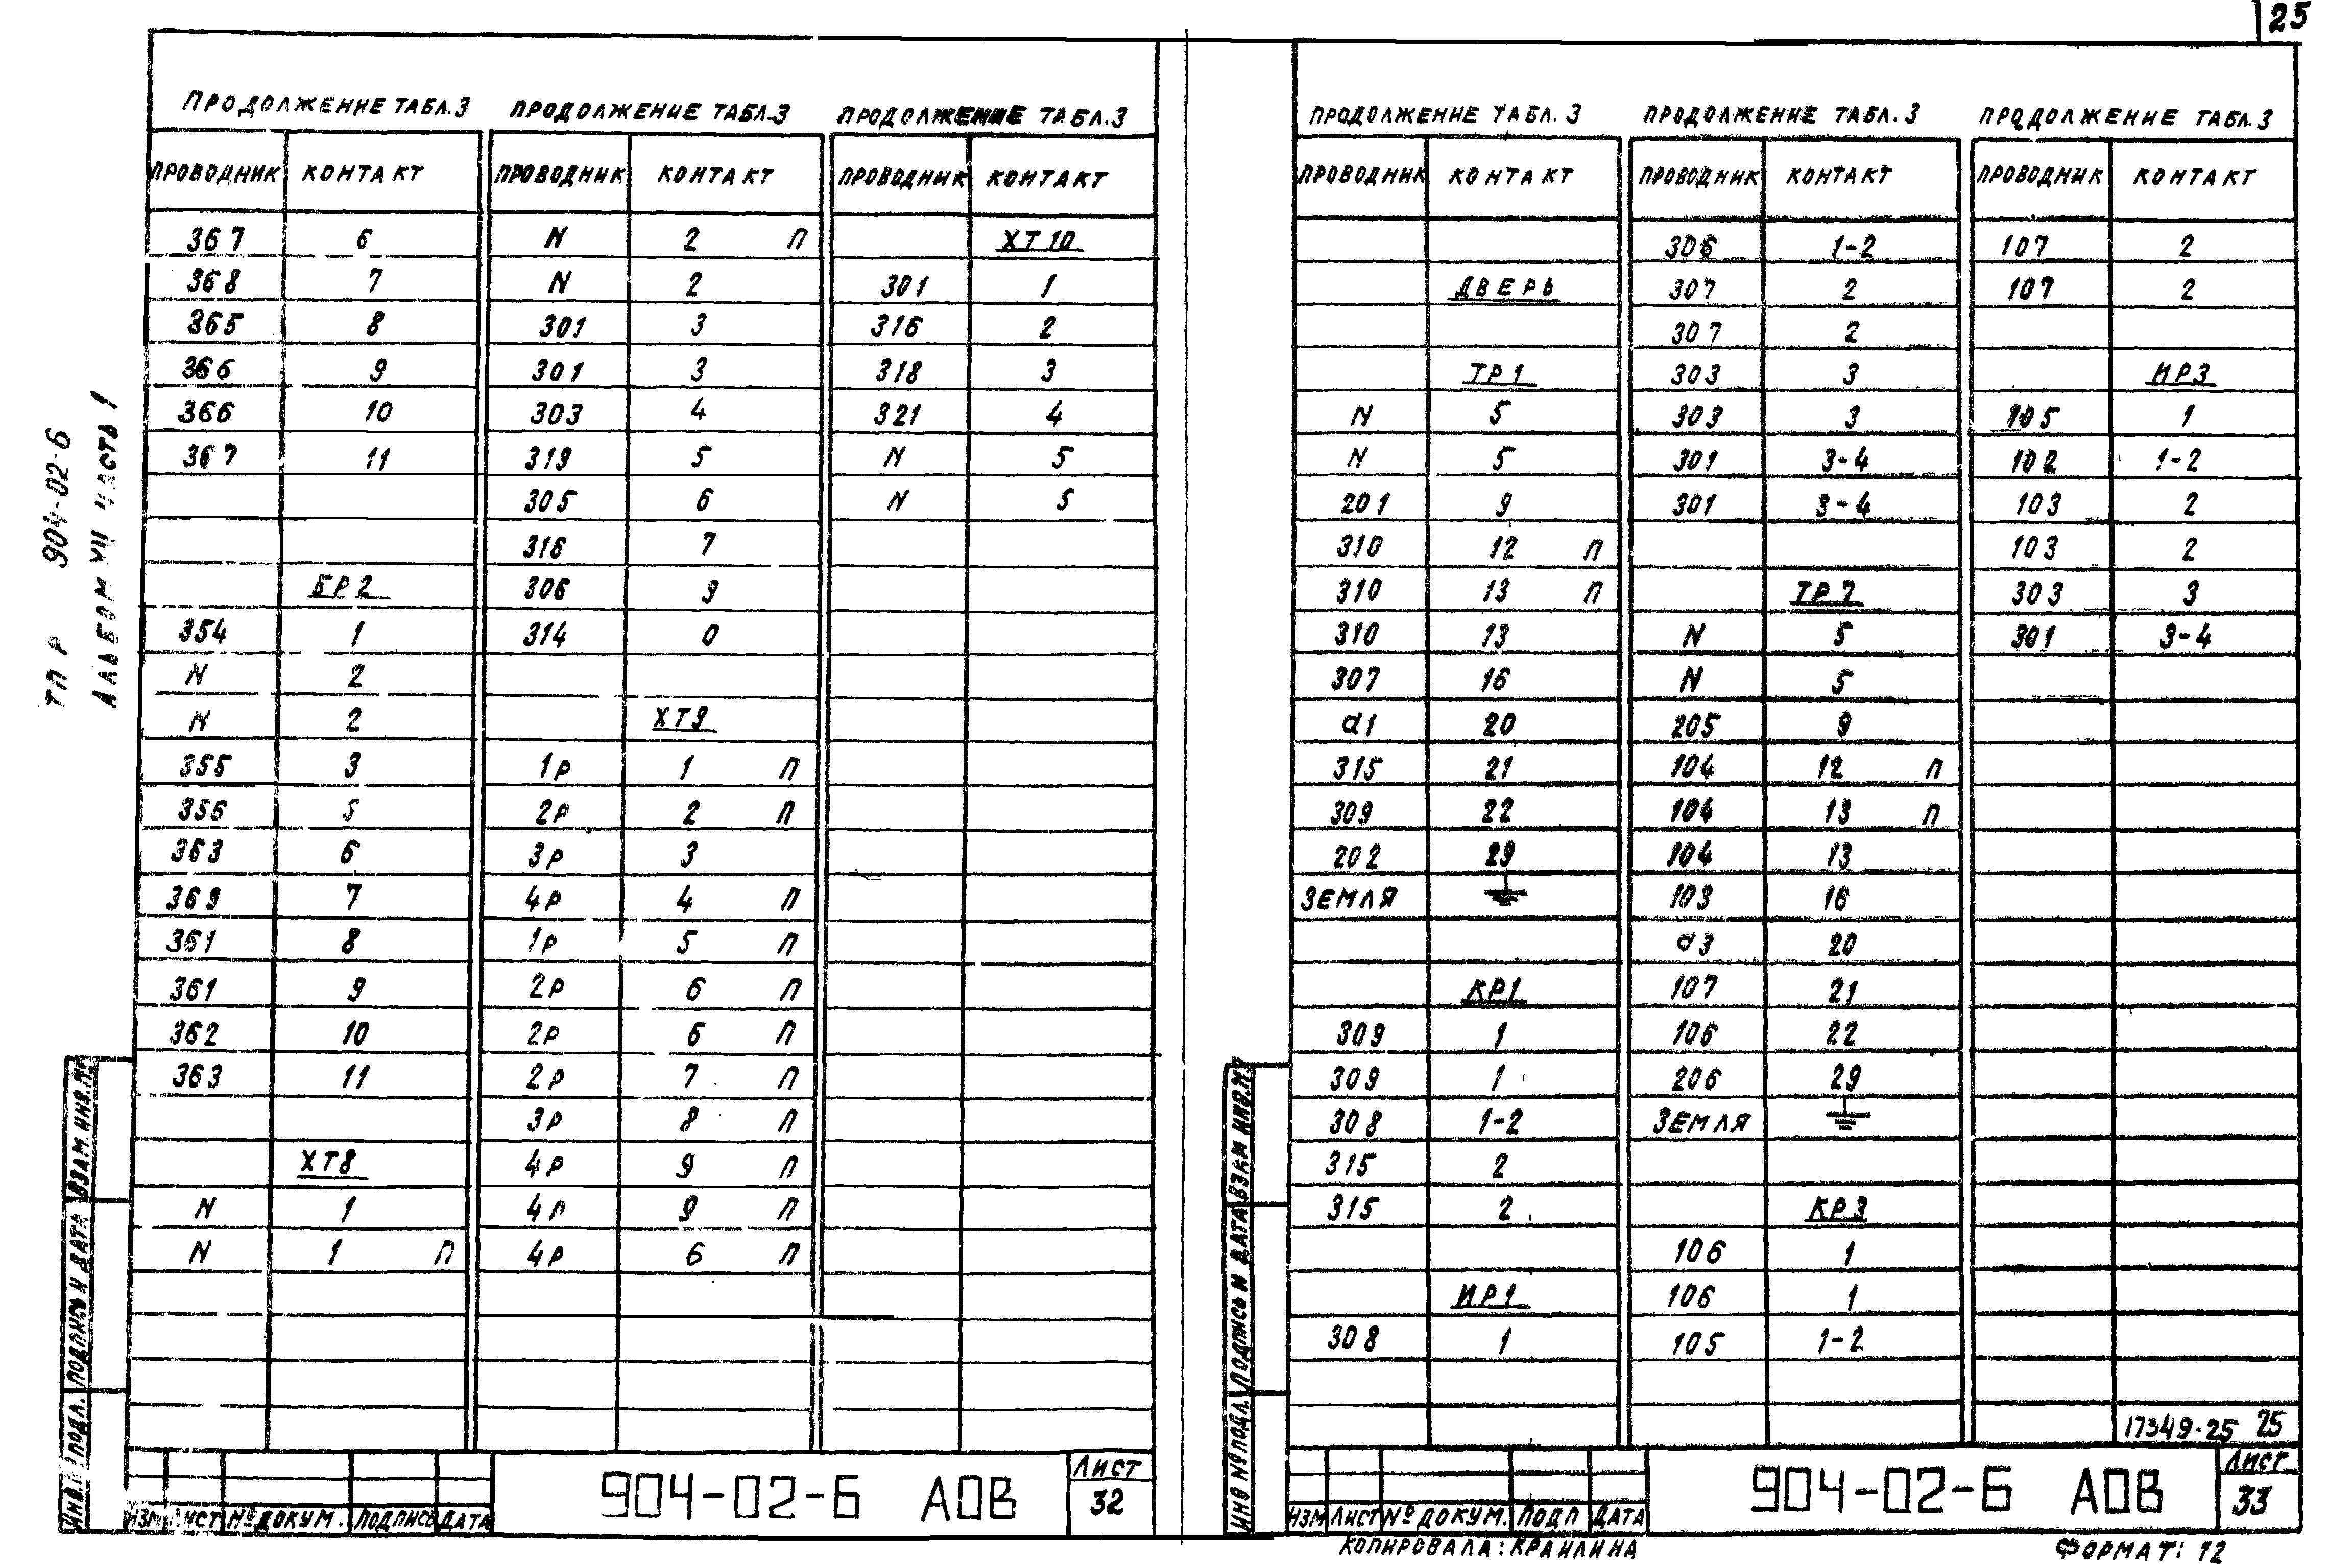 25
ПРОДОЛЖЕНИЕ ТАБЛ.3
ПРОВОДНИК КОНТАКТ
367 6
368 7
365 8
366 9
366 10
367 11
БР2
354 1
N 2
N 2
355 3
356 5
363 6
369 7
361 8
361 9
362 10
363 11
ХТ8
N 1
N 1 П
ПРОДОЛЖЕНИЕ ТАБЛ.3
ПРОВОДНИК КОНТАКТ
N 2 П
N 2
301 3
301 3
303 4
319 5
305 6
316 7
306 9
314 0
ХТ9
1Р 1 П
2Р 2 П
3Р 3
4Р 4 П
1Р 5 П
2Р 6 П
2Р 6 П
2Р 7 П
3Р 8 П
4Р 9 П
4Р 9 П
4Р 6 П
ПРОДОЛЖЕНИЕ ТАБЛ.3
ПРОВОДНИК КОНТАКТ
ХТ10
301 1
316 2
318 3
321 4
N 5
N 5
ТП Р 904-02-6
АЛЬБОМ VII ЧАСТЬ 1
ВЗАМ.ИНВ.№
ПОДПИСЬ И ДАТА
ИНВ.№ ПОДЛ.
ИЗМ ЛИСТ № ДОКУМ. ПОДПИСЬ ДАТА
904-02-6 АОВ
ЛИСТ
32
ПРОДОЛЖЕНИЕ ТАБЛ.3
ПРОВОДНИК КОНТАКТ
ДВЕРЬ
ТР1
N 5
N 5
201 9
310 12 П
310 13 П
310 13
307 16
d1 20
315 21
309 22
202 29
ЗЕМЛЯ ⏚
КР1
309 1
309 1
308 1-2
315 2
315 2
ИР1
308 1
ПРОДОЛЖЕНИЕ ТАБЛ.3
ПРОВОДНИК КОНТАКТ
306 1-2
307 2
307 2
303 3
303 3
301 3-4
301 3-4
ТР7
N 5
N 5
205 9
104 12 П
104 13 П
104 13
103 16
d3 20
107 21
106 22
206 29
ЗЕМЛЯ ⏚
КР3
106 1
106 1
105 1-2
ПРОДОЛЖЕНИЕ ТАБЛ.3
ПРОВОДНИК КОНТАКТ
107 2
107 2
ИР3
105 1
102 1-2
103 2
103 2
303 3
301 3-4
17349-25 25
ВЗАМ ИНВ.№
ПОДПИСЬ И ДАТА
ИНВ № ПОДЛ.
ИЗМ ЛИСТ № ДОКУМ. ПОДП ДАТА
904-02-6 АОВ
ЛИСТ
33
КОПИРОВАЛА: КРАИЛИНА
ФОРМАТ: 12